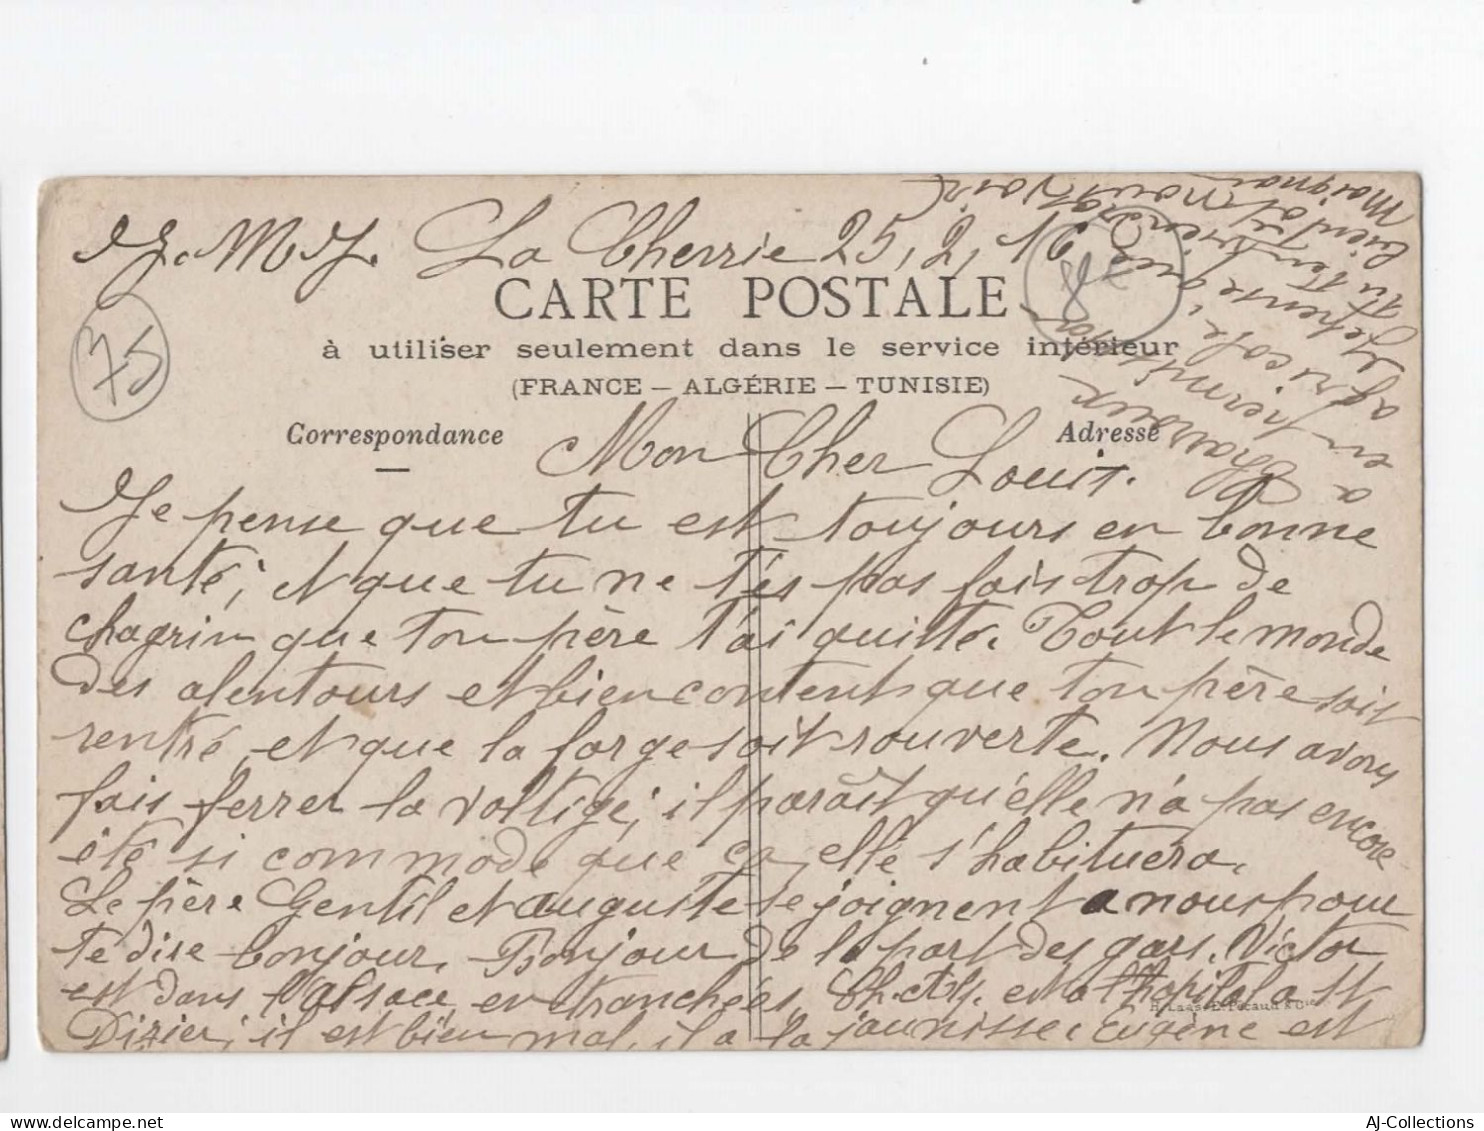 J. M. J. La Cherrie 25, 2, 16
75
8€
CARTE POSTALE
à utiliser seulement dans le service intérieur
(FRANCE — ALGÉRIE — TUNISIE)
Correspondance
Adresse
Mon Cher Louis.
Je pense que tu est toujours en bonne
santé; et que tu ne t'es pas fais trop de
chagrin que ton père t'ai quitté. Tout le monde
des alentours et bien content que ton père soit
rentré, et que la forge soit rouverte. Nous avons
fais ferrer la voltige; il paraît qu'elle n'a pas encore
été si commode que ça, elle s'habituera.
Le père Gentil et auguste se joignent a nous pour
te dire bonjour. Bonjour de la part des gars. Victor
est dans l'alsace, en tranchées, Ch. et a l'hopital a St
H. Laas, E. Pécaud & Cie
Dizier, il est bien mal, il a la jaunisse. Eugène est
a
en permi
agricole.
Je pense que
tu viendra
bientôt nous voir